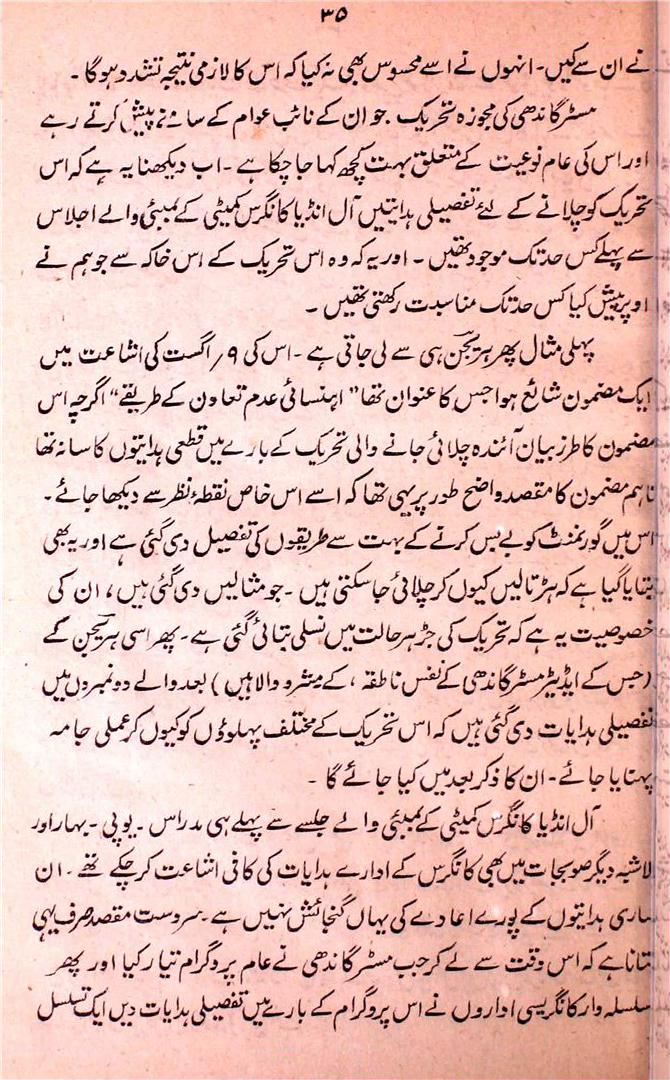 ۳۵
نے ان سے کیں۔ انہوں نے اسے محسوس بھی نہ کیا کہ اس کا لازمی نتیجہ تشدد ہوگا۔
مسٹر گاندھی کی مجوزہ تحریک جو ان کے نائب عوام کے سامنے پیش کرتے رہے
اور اس کی عام نوعیت کے متعلق بہت کچھ کہا جا چکا ہے۔ اب دیکھنا یہ ہے کہ اس
تحریک کو چلانے کے لئے تفصیلی ہدایتیں آل انڈیا کانگرس کمیٹی کے بمبئی والے اجلاس
سے پہلے کس حد تک موجود تھیں۔ اور یہ کہ وہ اس تحریک کے اس خاکہ سے جو ہم نے
اوپر پیش کیا کس حد تک مناسبت رکھتی تھیں۔
پہلی مثال پھر ہریجن ہی سے لی جاتی ہے۔ اس کی ۹؍ اگست کی اشاعت میں
ایک مضمون شائع ہوا جس کا عنوان تھا "اہنسائی عدم تعاون کے طریقے" اگرچہ اس
مضمون کا طرز بیان آئندہ چلائی جانے والی تحریک کے بارے میں قطعی ہدایتوں کا سا نہ تھا
تاہم مضمون کا مقصد واضح طور پر یہی تھا کہ اسے اس خاص نقطۂ نظر سے دیکھا جائے۔
اس میں گورنمنٹ کو بے بس کرنے کے بہت سے طریقوں کی تفصیل دی گئی ہے اور یہ بھی
بتایا گیا ہے کہ ہڑتالیں کیوں کر چلائی جا سکتی ہیں۔ جو مثالیں دی گئی ہیں، ان کی
خصوصیت یہ ہے کہ تحریک کی جڑ ہر حالت میں نسلی بتائی گئی ہے۔ پھر اسی ہریجن کے
(جس کے ایڈیٹر مسٹر گاندھی کے نفس ناطقہ، کے مشرو والا ہیں) بعد والے دو نمبروں میں
تفصیلی ہدایات دی گئی ہیں کہ اس تحریک کے مختلف پہلوؤں کو کیوں کر عملی جامہ
پہنایا جائے۔ ان کا ذکر بعد میں کیا جائے گا۔
آل انڈیا کانگرس کمیٹی کے بمبئی والے جلسے سے پہلے ہی مدراس۔ یو پی۔ بہار اور
بلاشبہ دیگر صوبجات میں بھی کانگرس کے ادارے ہدایات کی کافی اشاعت کر چکے تھے۔ ان
ساری ہدایتوں کے پورے اعادے کی یہاں گنجائش نہیں ہے۔ سردست مقصد صرف یہی
بتانا ہے کہ اس وقت سے لے کر جب مسٹر گاندھی نے عام پروگرام تیار کیا اور پھر
سلسلہ وار کانگریسی اداروں نے اس پروگرام کے بارے میں تفصیلی ہدایات دیں ایک تسلسل